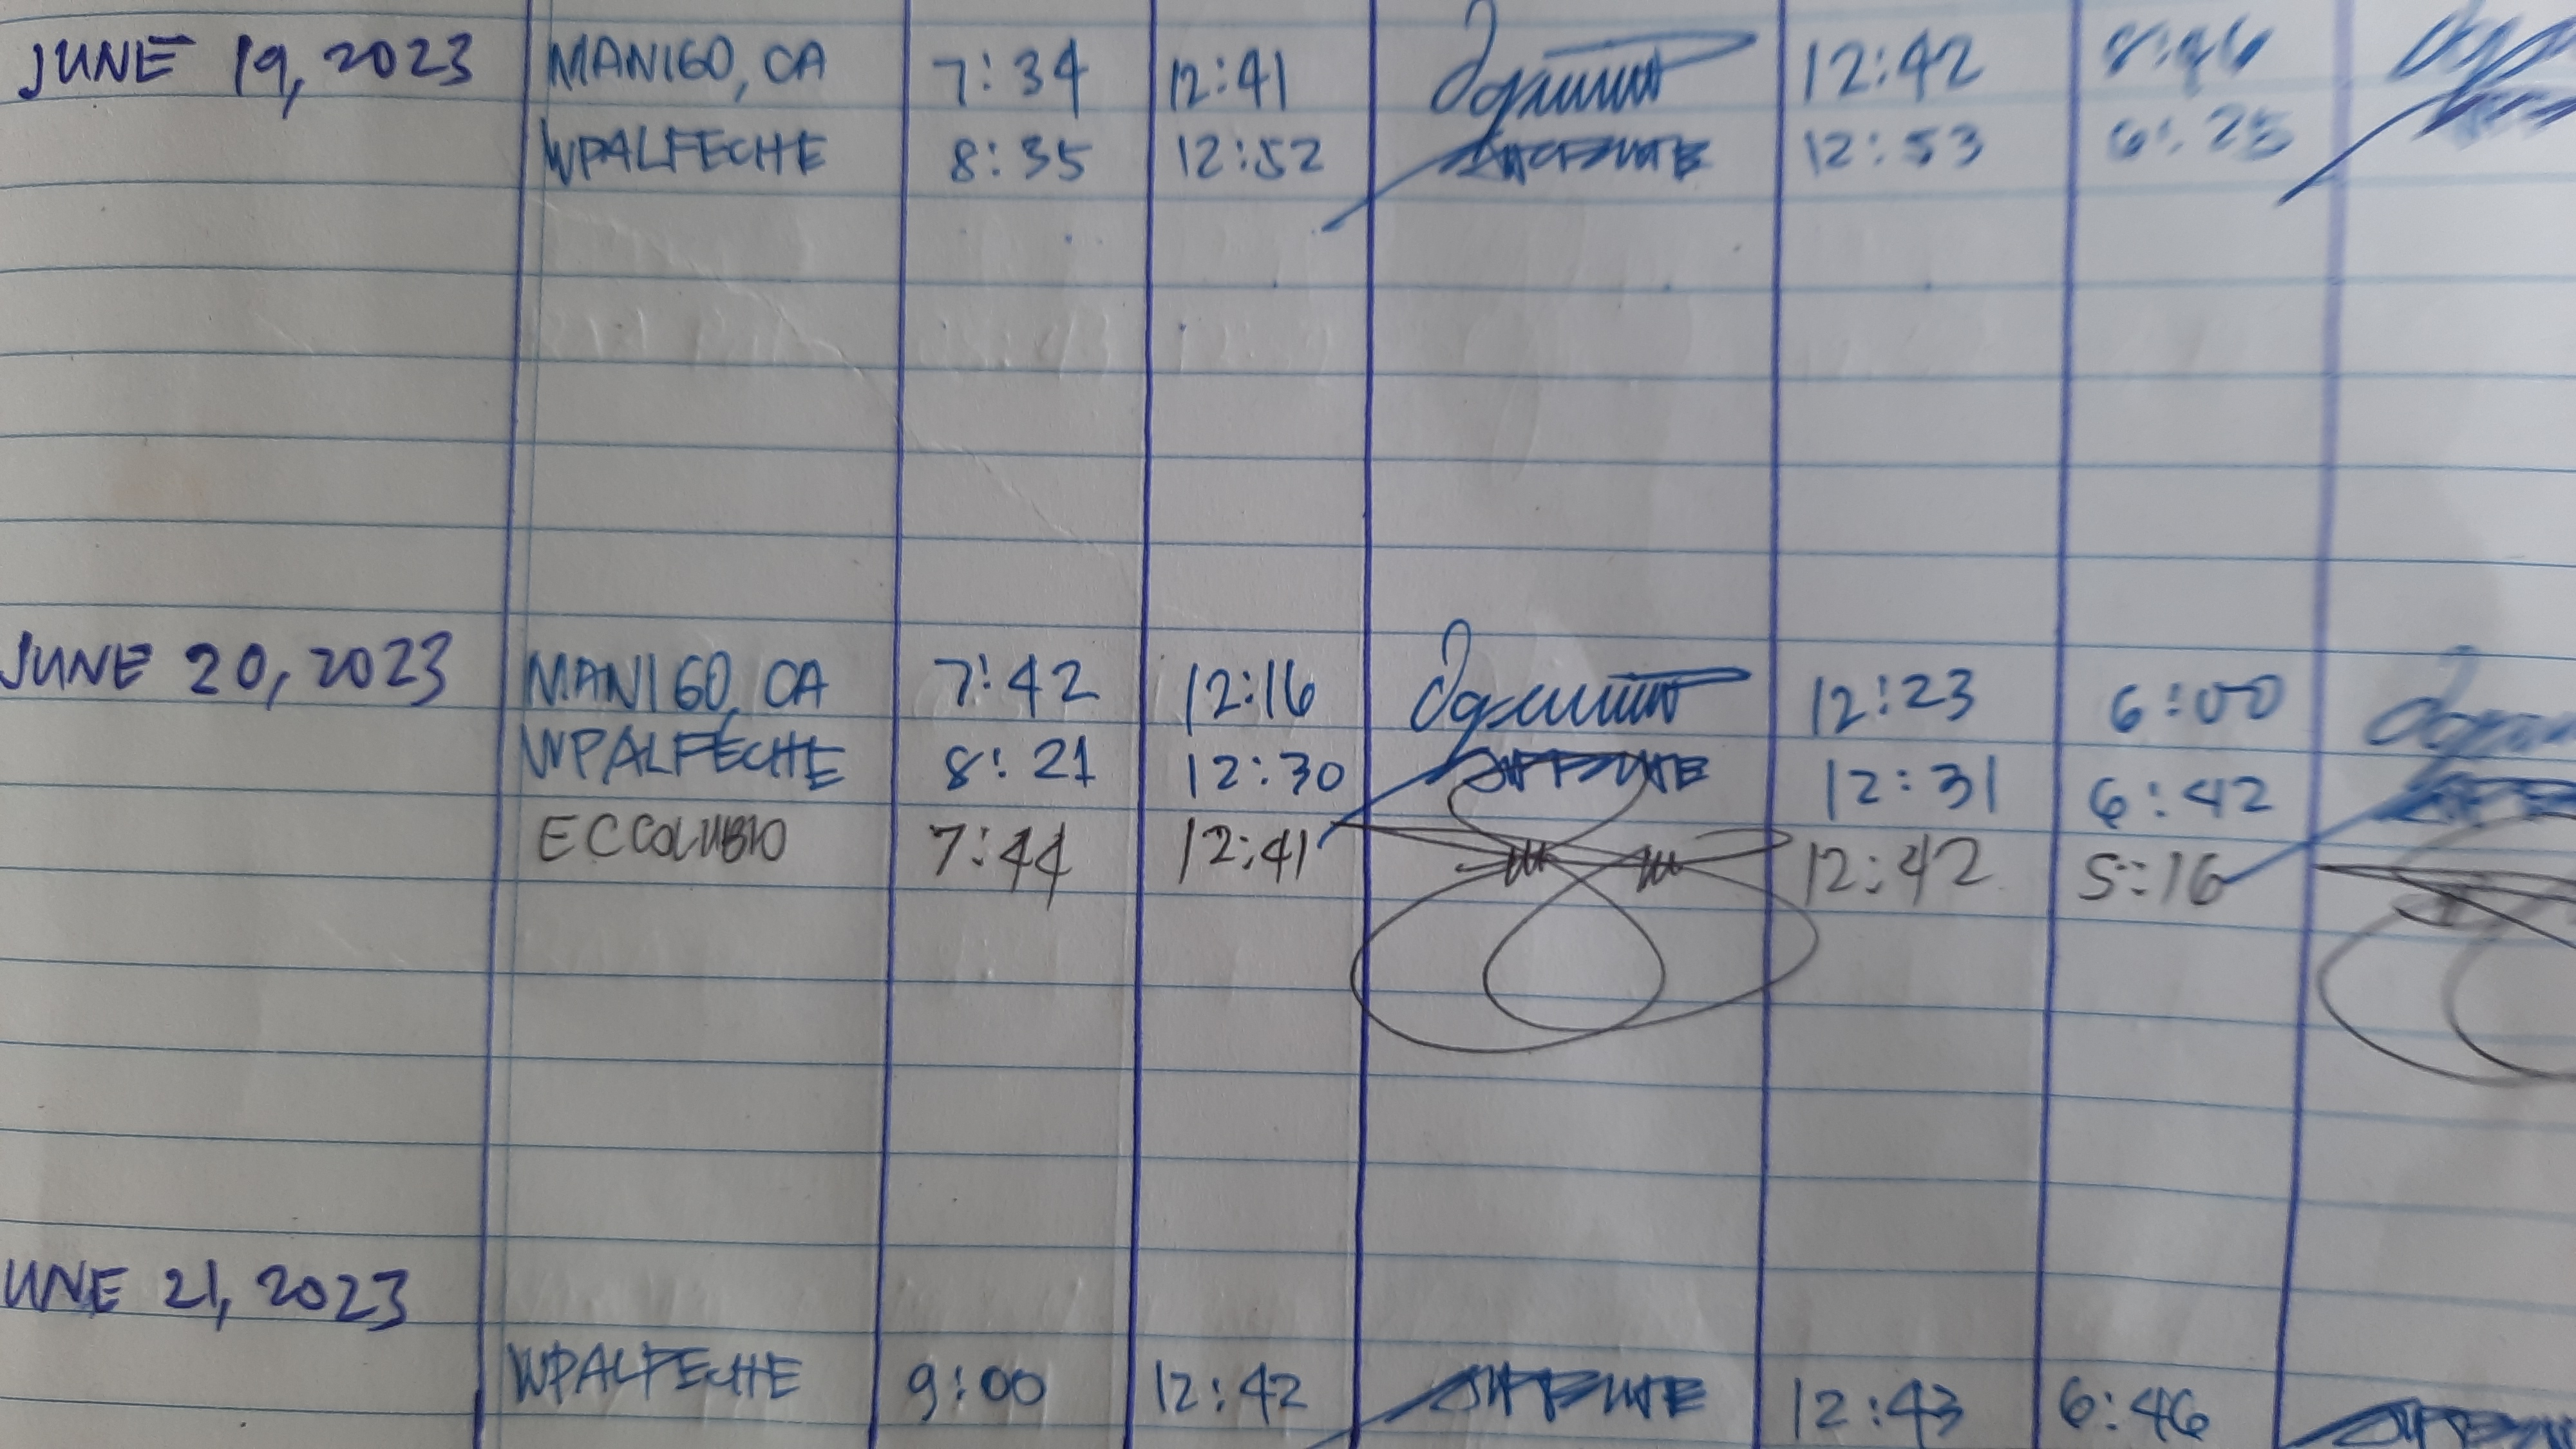 JUNE 19, 2023 MANIGO, CA 7:34 12:41 12:42
WPALFECHE 8:35 12:52 12:53 6:25
JUNE 20, 2023 MANIGO, CA 7:42 12:16 12:23 6:00
WPALFECHE 8:21 12:30 12:31 6:42
ECCOLUBIO 7:44 12:41 12:42 5:16
UNE 21, 2023
WPALFECHE 9:00 12:42 12:43 6:46